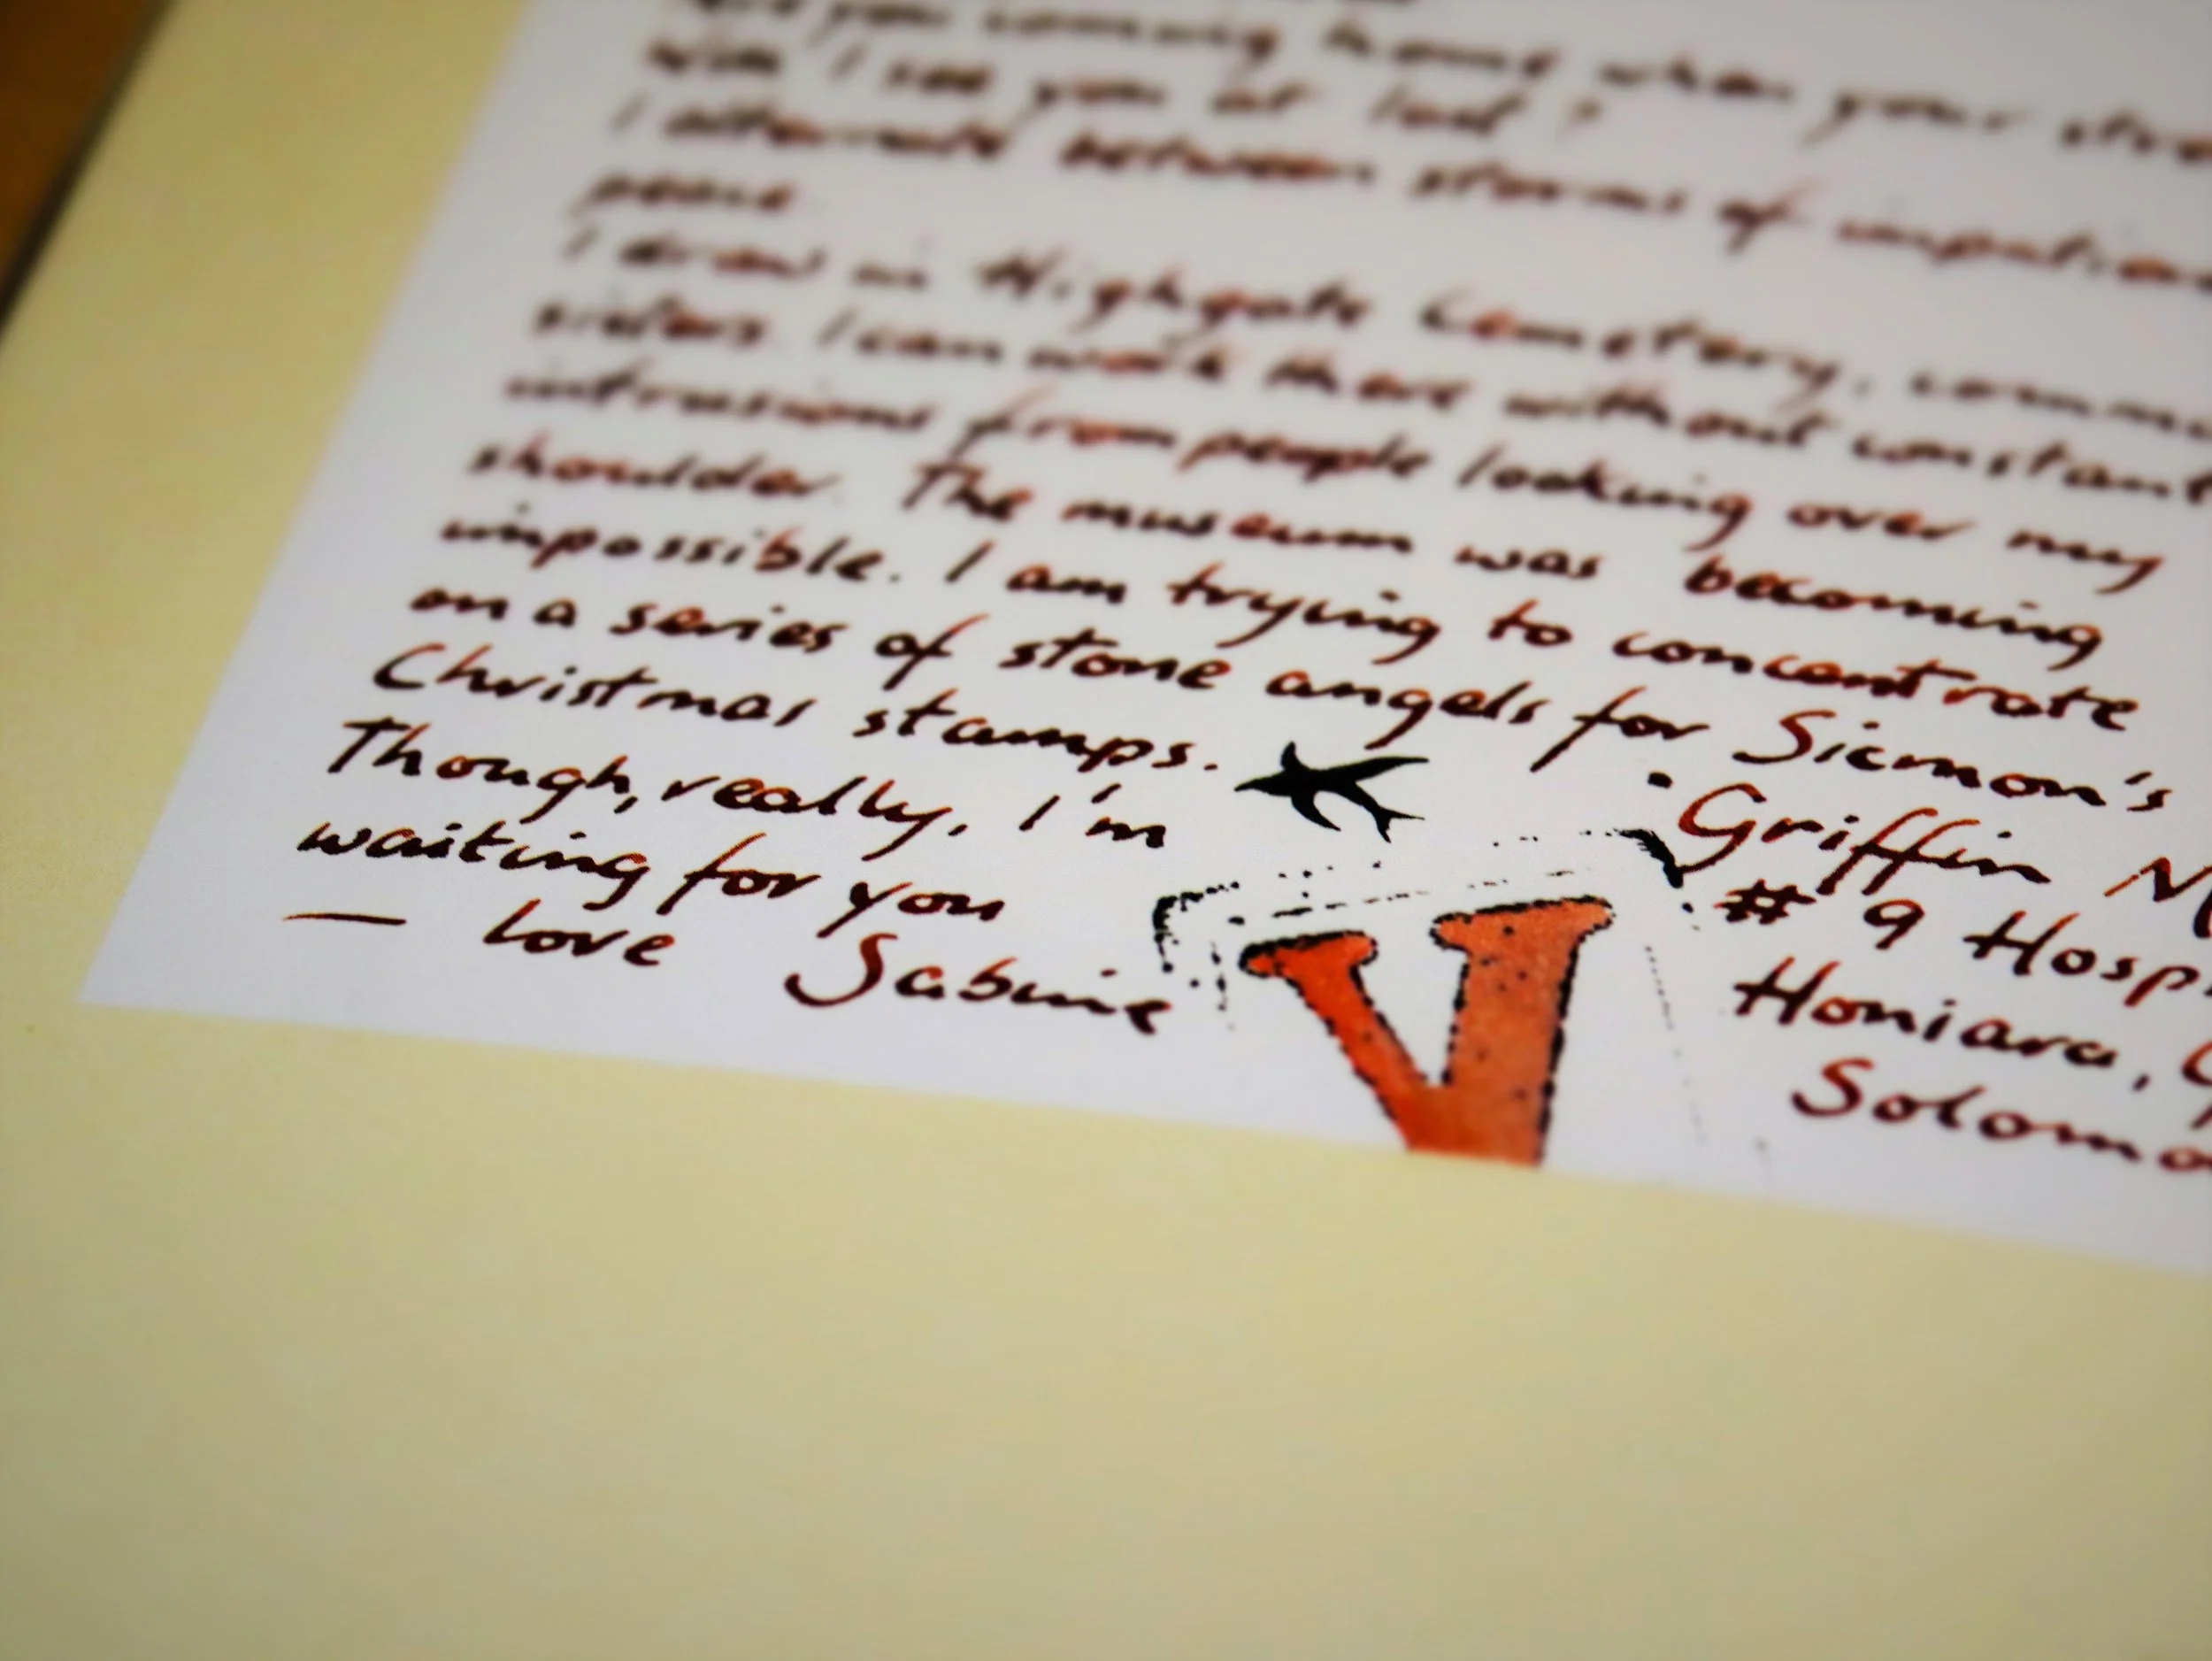 you coming home when your
Will I see you at last?
I alternate between storms of
peace.
I draw in Highgate Cemetery,
sisters. I can work there without constant
intrusions from people looking over my
shoulder. The museum was becoming
impossible. I am trying to concentrate
on a series of stone angels for Sicmon's
Christmas stamps.
Though, really, I'm
waiting for you
— love Sabine
Griffin
# 9
Honiara,
V